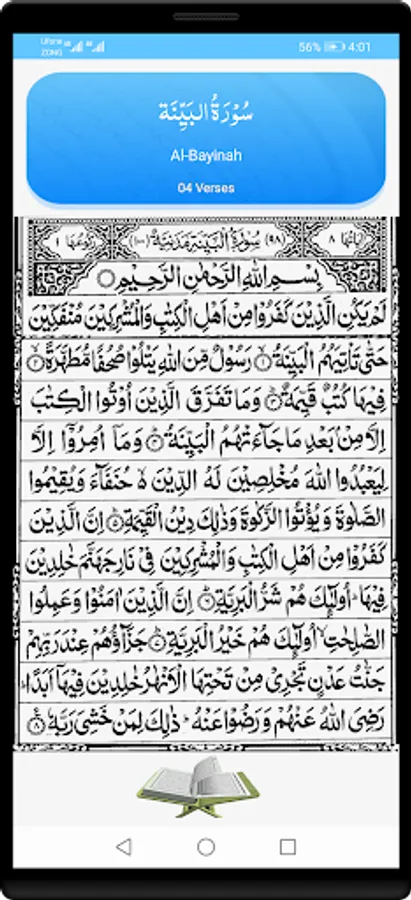 Ufone
ZONG
56% 4:01
سُوْرَةُ الْبَيِّنَة
Al-Bayinah
04 Verses
اٰيَاتُهَا ٨ (٩٨) سُوْرَةُ الْبَيِّنَةِ مَدَنِيَّةٌ (١٠٠) رُكُوْعُهَا ١
بِسْمِ اللّٰهِ الرَّحْمٰنِ الرَّحِيْمِ
لَمْ يَكُنِ الَّذِيْنَ كَفَرُوْا مِنْ اَهْلِ الْكِتٰبِ وَالْمُشْرِكِيْنَ مُنْفَكِّيْنَ
حَتّٰى تَاْتِيَهُمُ الْبَيِّنَةُ ١ رَسُوْلٌ مِّنَ اللّٰهِ يَتْلُوْا صُحُفًا مُّطَهَّرَةً ٢
فِيْهَا كُتُبٌ قَيِّمَةٌ ٣ وَمَا تَفَرَّقَ الَّذِيْنَ اُوْتُوا الْكِتٰبَ
اِلَّا مِنْ بَعْدِ مَا جَآءَتْهُمُ الْبَيِّنَةُ ٤ وَمَآ اُمِرُوْٓا اِلَّا
لِيَعْبُدُوا اللّٰهَ مُخْلِصِيْنَ لَهُ الدِّيْنَ ۙ حُنَفَآءَ وَيُقِيْمُوا
الصَّلٰوةَ وَيُؤْتُوا الزَّكٰوةَ وَذٰلِكَ دِيْنُ الْقَيِّمَةِ ٥ اِنَّ الَّذِيْنَ
كَفَرُوْا مِنْ اَهْلِ الْكِتٰبِ وَالْمُشْرِكِيْنَ فِيْ نَارِ جَهَنَّمَ خٰلِدِيْنَ
فِيْهَا ۚ اُولٰٓئِكَ هُمْ شَرُّ الْبَرِيَّةِ ٦ اِنَّ الَّذِيْنَ اٰمَنُوْا وَعَمِلُوا
الصّٰلِحٰتِ ۙ اُولٰٓئِكَ هُمْ خَيْرُ الْبَرِيَّةِ ٧ جَزَآؤُهُمْ عِنْدَ رَبِّهِمْ
جَنّٰتُ عَدْنٍ تَجْرِيْ مِنْ تَحْتِهَا الْاَنْهٰرُ خٰلِدِيْنَ فِيْهَآ اَبَدًا ۚ
رَضِيَ اللّٰهُ عَنْهُمْ وَرَضُوْا عَنْهُ ۚ ذٰلِكَ لِمَنْ خَشِيَ رَبَّهٗ ٨